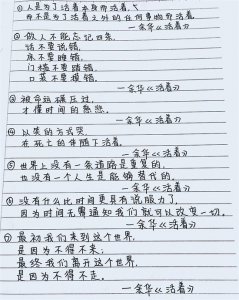 ①人是为了活着本身而活着,
而不是为了活着之外的任何事物而活着.
—余华《活着》
②做人不能忘记四条,
话不要说错,
床不要睡错,
门槛不要踏错,
口袋不要摸错.
—余华《活着》
③被命运碾压过,
才懂时间的慈悲.
—余华《活着》
④以笑的方式哭,
在死亡的伴随下活着.
—余华《活着》
⑤世界上没有一条道路是重复的,
也没有一个人生是能够替代的.
—余华《活着》
⑥没有什么比时间更具有说服力了,
因为时间无需通知我们就可以改变一切.
—余华《活着》
⑦最初我们来到这个世界,
是因为不得不来;
最终我们离开这个世界,
是因为不得不走.
—余华《活着》